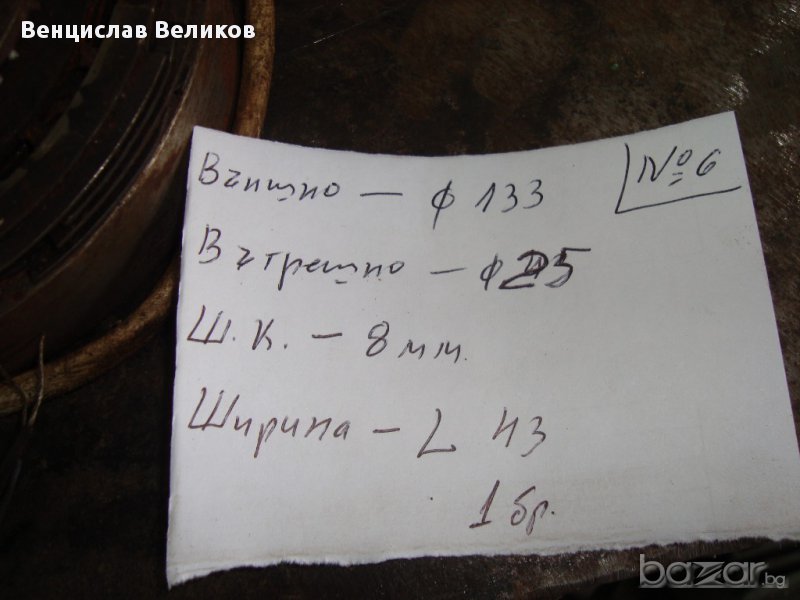 Венцислав Великов
№ 6
Външно — ф 133
Вътрешно — ф 25
Ш.К. — 8 мм.
Ширина — L 43
1 бр.
bazar.bg